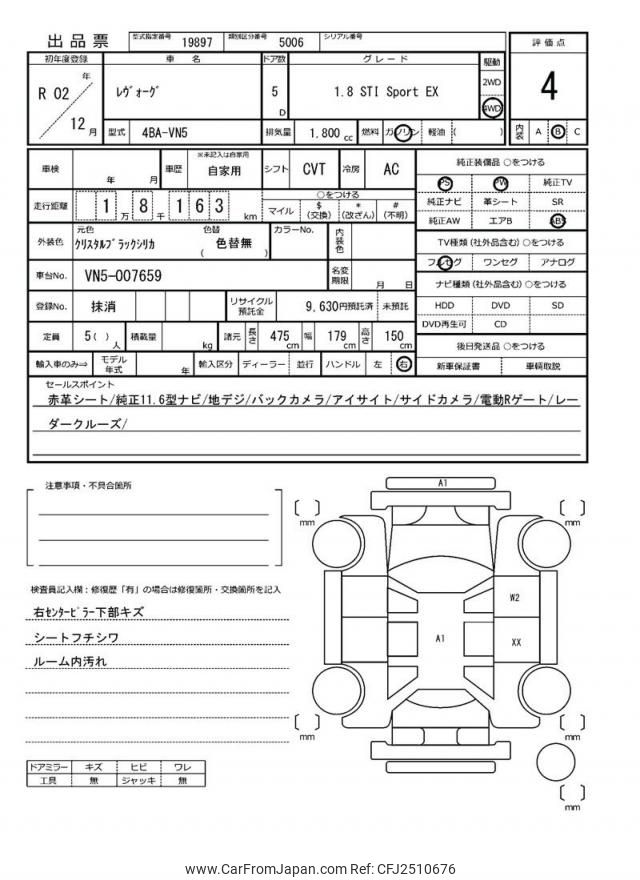 出品票 型式指定番号 19897 類別区分番号 5006 シリアル番号
初年度登録 車名 ドア数 グレード 駆動 評価点
R 02 年 12 月 レヴォーグ 5 D 1.8 STI Sport EX 2WD 4WD 4
型式 4BA-VN5 排気量 1.800 cc 燃料 ガソリン 軽油 ( ) 内装 A B C
車検 年 月 車歴 ※未記入は自家用 自家用 シフト CVT 冷房 AC 純正装備品 ○をつける
PS PW 純正TV
走行距離 1 万 8 千 1 6 3 km ○をつける
マイル $ (交換) * (改ざん) # (不明)
純正ナビ 革シート SR
純正AW エアB ABS
外装色 元色 クリスタルブラックシリカ 色替 ( 色替無 ) カラーNo. 内装色
TV種類(社外品含む)○をつける
フルセグ ワンセグ アナログ
車台No. VN5-007659 名変期限 月 日
ナビ種類(社外品含む)○をつける
登録No. 抹消 リサイクル預託金 9,630円預託済 未預託
HDD DVD SD
DVD再生可 CD
定員 5( ) 人 積載量 kg 諸元 長さ 475 cm 幅 179 cm 高さ 150 cm
後日発送品 ○をつける
輸入車のみ⇒ モデル年式 年 輸入区分 ディーラー 並行 ハンドル 左 右
新車保証書 車輌取説
セールスポイント
赤革シート/純正11.6型ナビ/地デジ/バックカメラ/アイサイト/サイドカメラ/電動Rゲート/レー
ダークルーズ/
注意事項・不具合箇所
検査員記入欄:修復歴「有」の場合は修復箇所・交換箇所を記入
右センターピラー下部キズ
シートフチシワ
ルーム内汚れ
ドアミラー キズ ヒビ ワレ
工具 無 ジャッキ 無
A1
[ ] mm
[ ] mm
W2
A1
XX
[ ] mm
[ ] mm
[ ] mm
www.CarFromJapan.com Ref: CFJ2510676